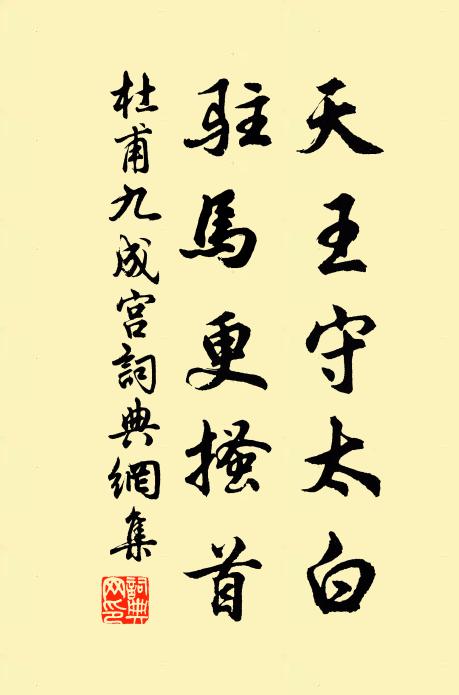 天王守太白
駐馬更搔首
杜甫九成宮詞典網集
詞典
网印